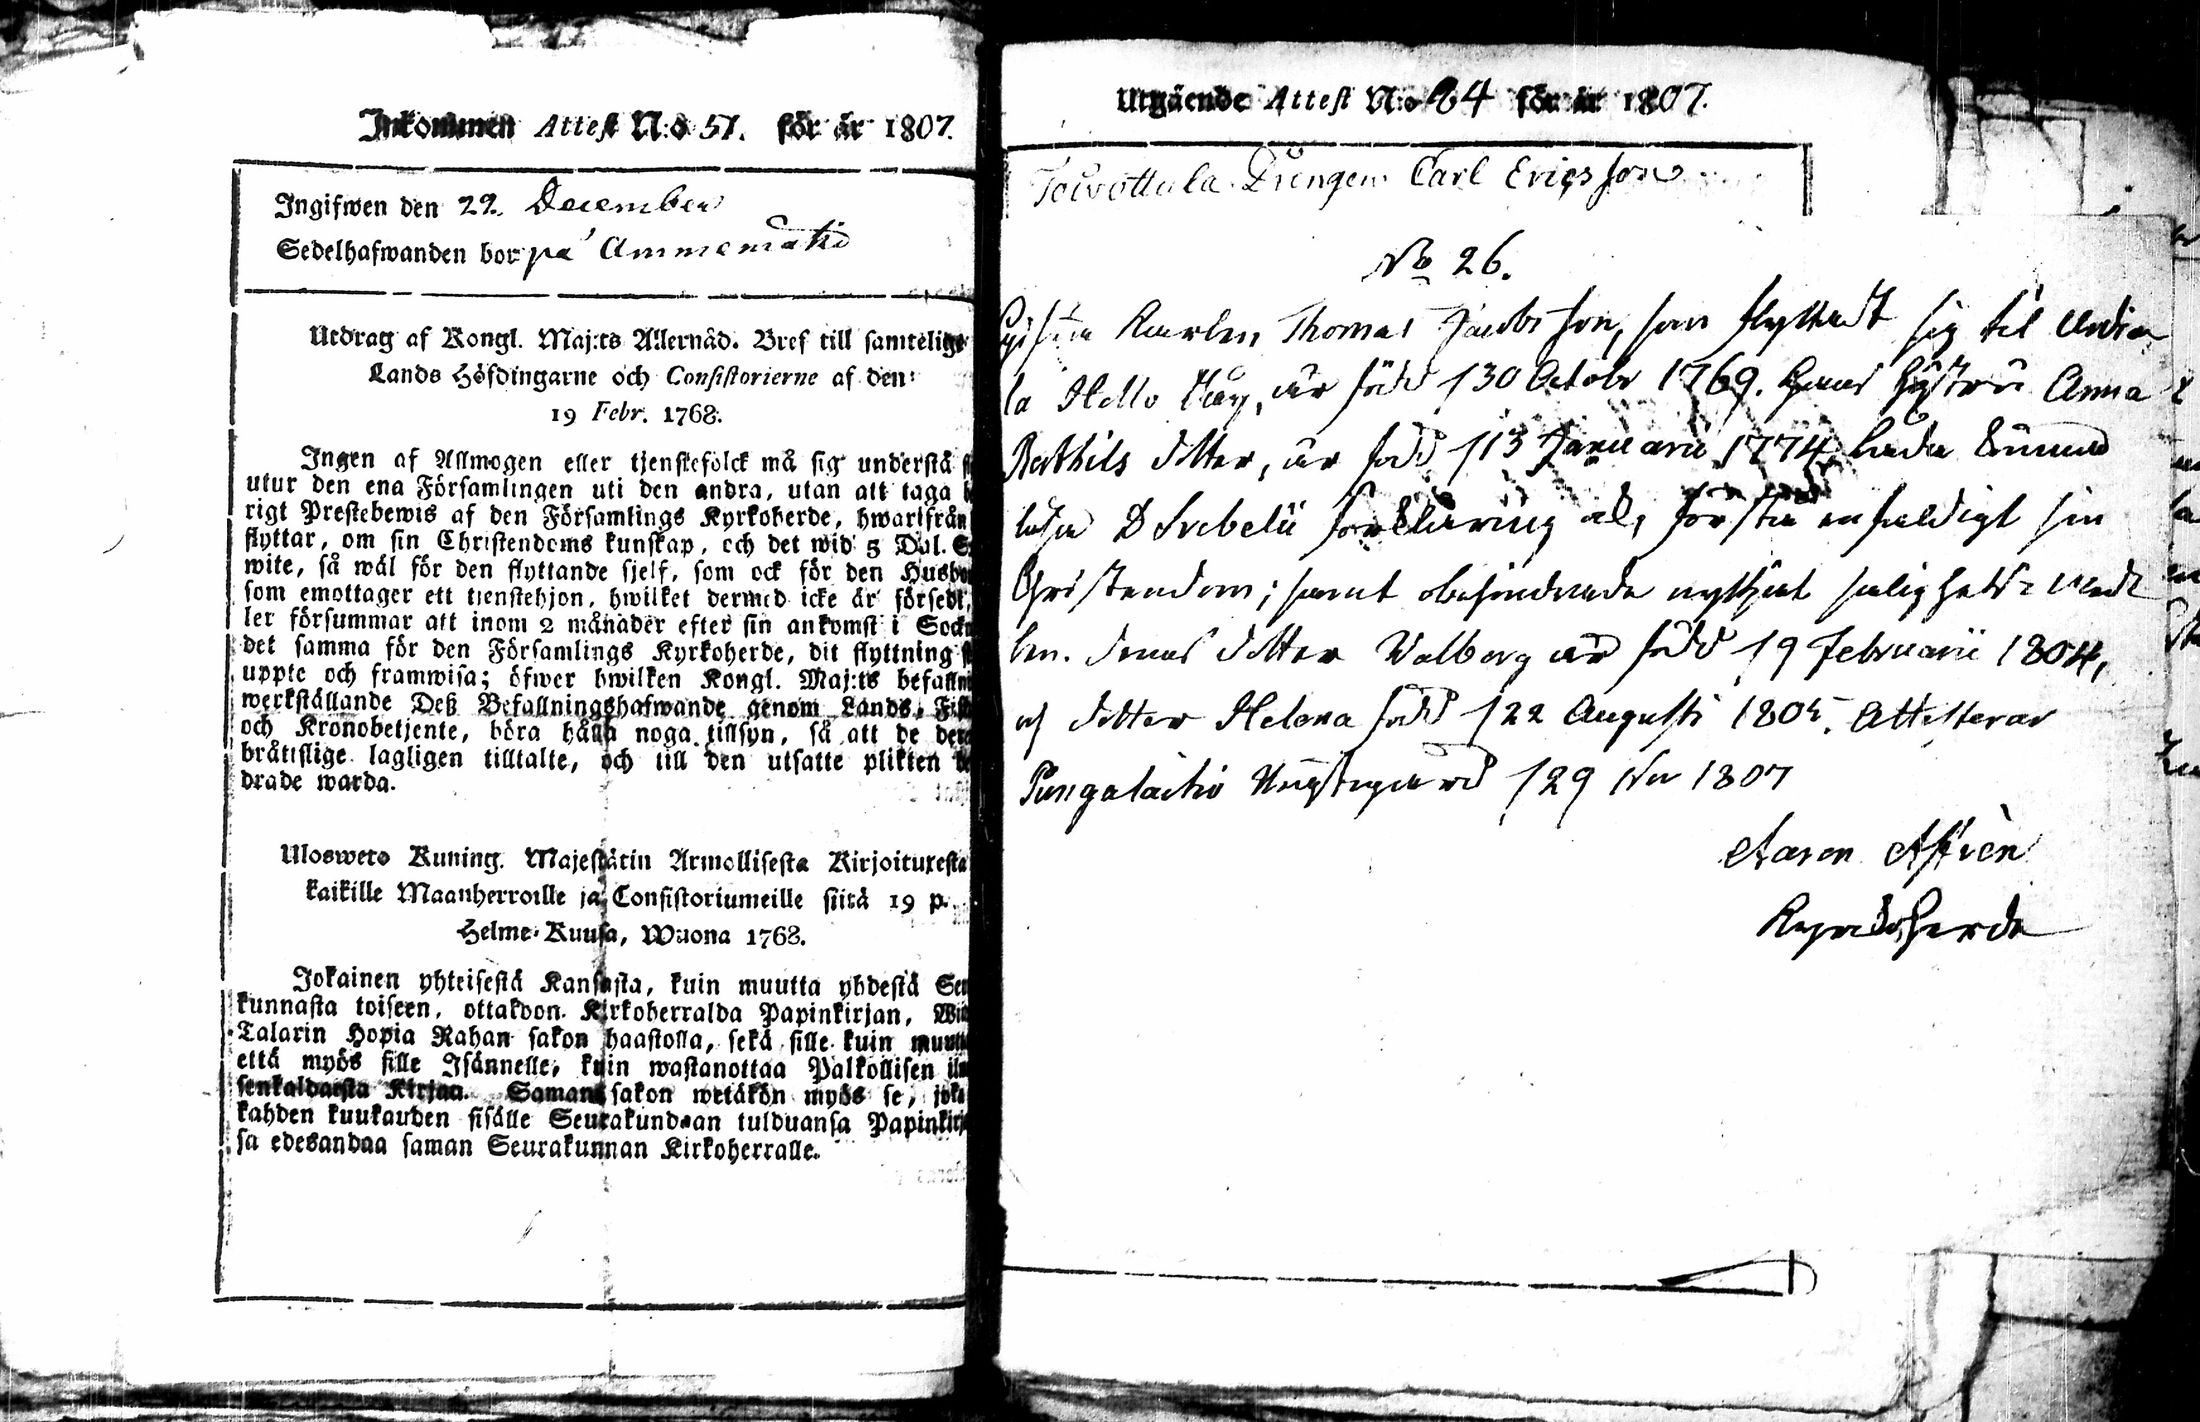 Inkommen Attest N:o 51. för år 1807.
Ingifwen den 22. December
Sedelhafwanden bor på Ammemäki
Utdrag af Kongl. Maj:ts Allernåd. Bref till samtelige
Lands Höfdingarne och Consistorierne af den
19 Febr. 1768.
Ingen af Allmogen eller tjenstefolck må sig understå
utur den ena Församlingen uti den andra, utan att taga
rigt Prestebewis af den Församlings Kyrkoherde, hwarifrån
flyttar, om sin Christendoms kunskap, och det wid 5 Dal. S
wite, så wäl för den flyttande sjelf, som ock för den Husbo
som emottager ett tienstehjon, hwilket dermed icke är försedt,
ler försummar att inom 2 månader efter sin ankomst i Sock
det samma för den Församlings Kyrkoherde, dit flyttning
uppte och framwisa; öfwer hwilken Kongl. Maj:ts befalln
werkställande Deß Befallningshafwande genom Lands, Fisk
och Kronobetjente, böra hålla noga tillsyn, så att de der
bråttslige lagligen tilltalte, och till den utsatte plikten
drade warda.
Ulosweto Kuning. Majestätin Armollisesta Kirjoituxesta
kaikille Maanherroille ja Consistoriumeille siitä 19 p.
Helme-Kuusa, Wuona 1768.
Jokainen yhteisestä Kansasta, kuin muutta yhdestä Seu
kunnasta toiseen, ottakoon Kirkoherralda Papinkirjan, Wii
Talarin Hopia Rahan sakon haastolla, sekä sille kuin muutta
että myös sille Isännelle, kuin wastanottaa Palkollisen ilm
senkaldaista Kirjaa. Saman sakon wetäkön myös se, joka
kahden kuukauden sisälle Seurakundaan tulduansa Papinkirj
sa edesandaa saman Seurakunnan Kirkoherralle.
Utgående Attest N:o 24 för år 1807.
Drängen Carl Ericsson
No 26.
Karlen Thomas Jacobsson, som flyttadt sig til
la är född /30 Octobr 1769. Hans Hustru Anna
Berthils dotter, är född /13 Januarii 1774, båda
läsa D Svebelii förklaring al, förstå enfaldigt sin
Christendom; samt obehindrade nyttjat salighets med
len. deras dotter Walborg är född /9 Februarii 1804,
och dotter Helena född /22 Augusti 1805. Attesterar
Pungalaitio /29 1807
Aaron
Kyrckoherde